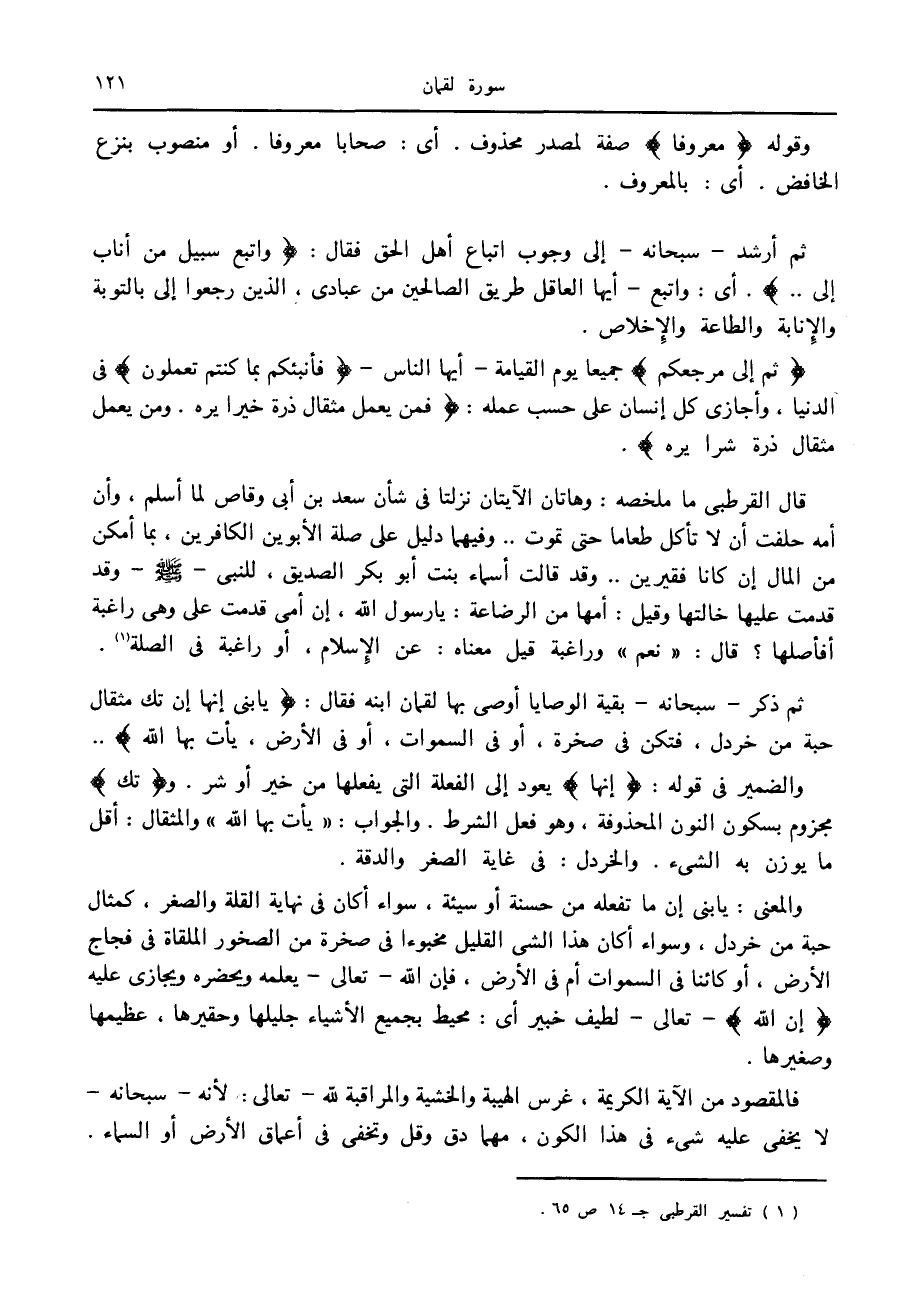 سورة لقمان ١٢١
وقوله ﴿ معروفا ﴾ صفة لمصدر محذوف . أى : صحابا معروفا . أو منصوب بنزع
الخافض . أى : بالمعروف .
ثم أرشد – سبحانه – إلى وجوب اتباع أهل الحق فقال : ﴿ واتبع سبيل من أناب
إلى .. ﴾ . أى : واتبع – أيها العاقل طريق الصالحين من عبادى ، الذين رجعوا إلى بالتوبة
والإنابة والطاعة والإخلاص .
﴿ ثم إلى مرجعكم ﴾ جميعا يوم القيامة – أيها الناس – ﴿ فأنبئكم بما كنتم تعملون ﴾ فى
الدنيا ، وأجازى كل إنسان على حسب عمله : ﴿ فمن يعمل مثقال ذرة خيرا يره . ومن يعمل
مثقال ذرة شرا يره ﴾ .
قال القرطبى ما ملخصه : وهاتان الآيتان نزلتا فى شأن سعد بن أبى وقاص لما أسلم ، وأن
أمه حلفت أن لا تأكل طعاما حتى تموت .. وفيهما دليل على صلة الأبوين الكافرين ، بما أمكن
من المال إن كانا فقيرين .. وقد قالت أسماء بنت أبو بكر الصديق ، للنبى – ﷺ – وقد
قدمت عليها خالتها وقيل : أمها من الرضاعة : يارسول الله ، إن أمى قدمت على وهى راغبة
أفأصلها ؟ قال : « نعم » وراغبة قيل معناه : عن الإسلام ، أو راغبة فى الصلة(١) .
ثم ذكر – سبحانه – بقية الوصايا أوصى بها لقمان ابنه فقال : ﴿ يابنى إنها إن تك مثقال
حبة من خردل ، فتكن فى صخرة ، أو فى السموات ، أو فى الأرض ، يأت بها الله ﴾ ..
والضمير فى قوله : ﴿ إنها ﴾ يعود إلى الفعلة التى يفعلها من خير أو شر . و﴿ تك ﴾
مجزوم بسكون النون المحذوفة ، وهو فعل الشرط . والجواب : « يأت بها الله » والمثقال : أقل
ما يوزن به الشىء . والخردل : فى غاية الصغر والدقة .
والمعنى : يابنى إن ما تفعله من حسنة أو سيئة ، سواء أكان فى نهاية القلة والصغر ، كمثال
حبة من خردل ، وسواء أكان هذا الشى القليل مخبوءا فى صخرة من الصخور الملقاة فى فجاج
الأرض ، أو كائنا فى السموات أم فى الأرض ، فإن الله – تعالى – يعلمه ويحضره ويجازى عليه
﴿ إن الله ﴾ – تعالى – لطيف خبير أى : محيط بجميع الأشياء جليلها وحقيرها ، عظيمها
وصغيرها .
فالمقصود من الآية الكريمة ، غرس الهيبة والخشية والمراقبة لله – تعالى : لأنه – سبحانه –
لا يخفى عليه شىء فى هذا الكون ، مهما دق وقل وتخفى فى أعماق الأرض أو السماء .
( ١ ) تفسير القرطبى جـ ١٤ ص ٦٥ .